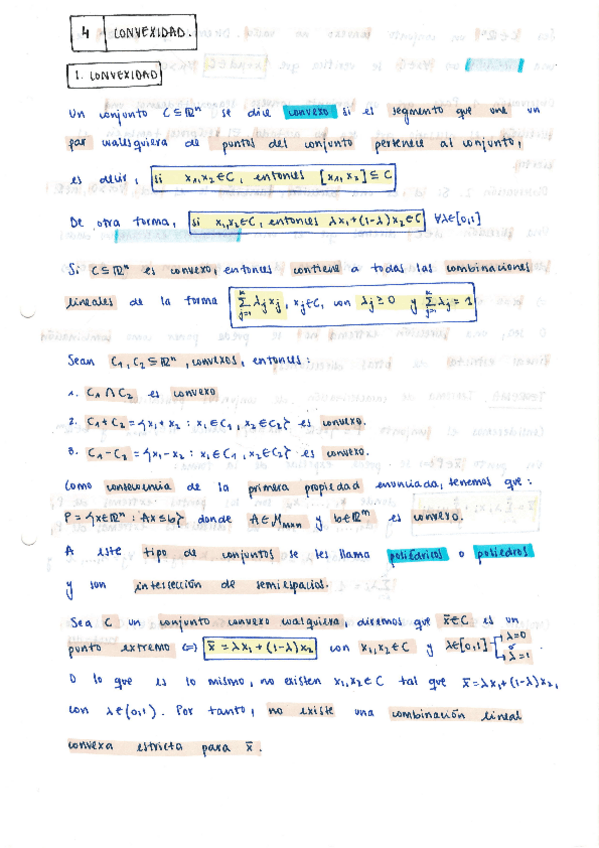 4 CONVEXIDAD.
1. CONVEXIDAD
Un conjunto C⊆ℝⁿ se dice convexo si el segmento que une un
par cualesquiera de puntos del conjunto pertenece al conjunto,
es decir, si x₁,x₂∈C, entonces [x₁,x₂]⊆C
De otra forma, si x₁,x₂∈C, entonces λx₁+(1-λ)x₂∈C ∀λ∈[0,1]
Si C⊆ℝⁿ es convexo, entonces contiene a todas las combinaciones
lineales de la forma ∑ⱼ₌₁ᵏ λⱼxⱼ, xⱼ∈C, con λⱼ≥0 y ∑ⱼ₌₁ᵏ λⱼ=1
Sean C₁,C₂⊆ℝⁿ, convexos, entonces:
1. C₁∩C₂ es convexo
2. C₁+C₂={x₁+x₂ : x₁∈C₁, x₂∈C₂} es convexo.
3. C₁-C₂={x₁-x₂ : x₁∈C₁, x₂∈C₂} es convexo.
Como consecuencia de la primera propiedad enunciada, tenemos que:
P={x∈ℝⁿ : Ax≤b} donde A∈Mₘₓₙ y b∈ℝᵐ es convexo.
A este tipo de conjuntos se les llama poliédricos o poliedros
y son intersección de semiespacios.
Sea C un conjunto convexo cualquiera, diremos que x̄∈C es un
punto extremo ⇔ x̄=λx₁+(1-λ)x₂ con x₁,x₂∈C y λ∈[0,1] λ=0 o λ=1
O lo que es lo mismo, no existen x₁,x₂∈C tal que x̄=λx₁+(1-λ)x₂,
con λ∈(0,1). Por tanto, no existe una combinación lineal
convexa estricta para x̄.